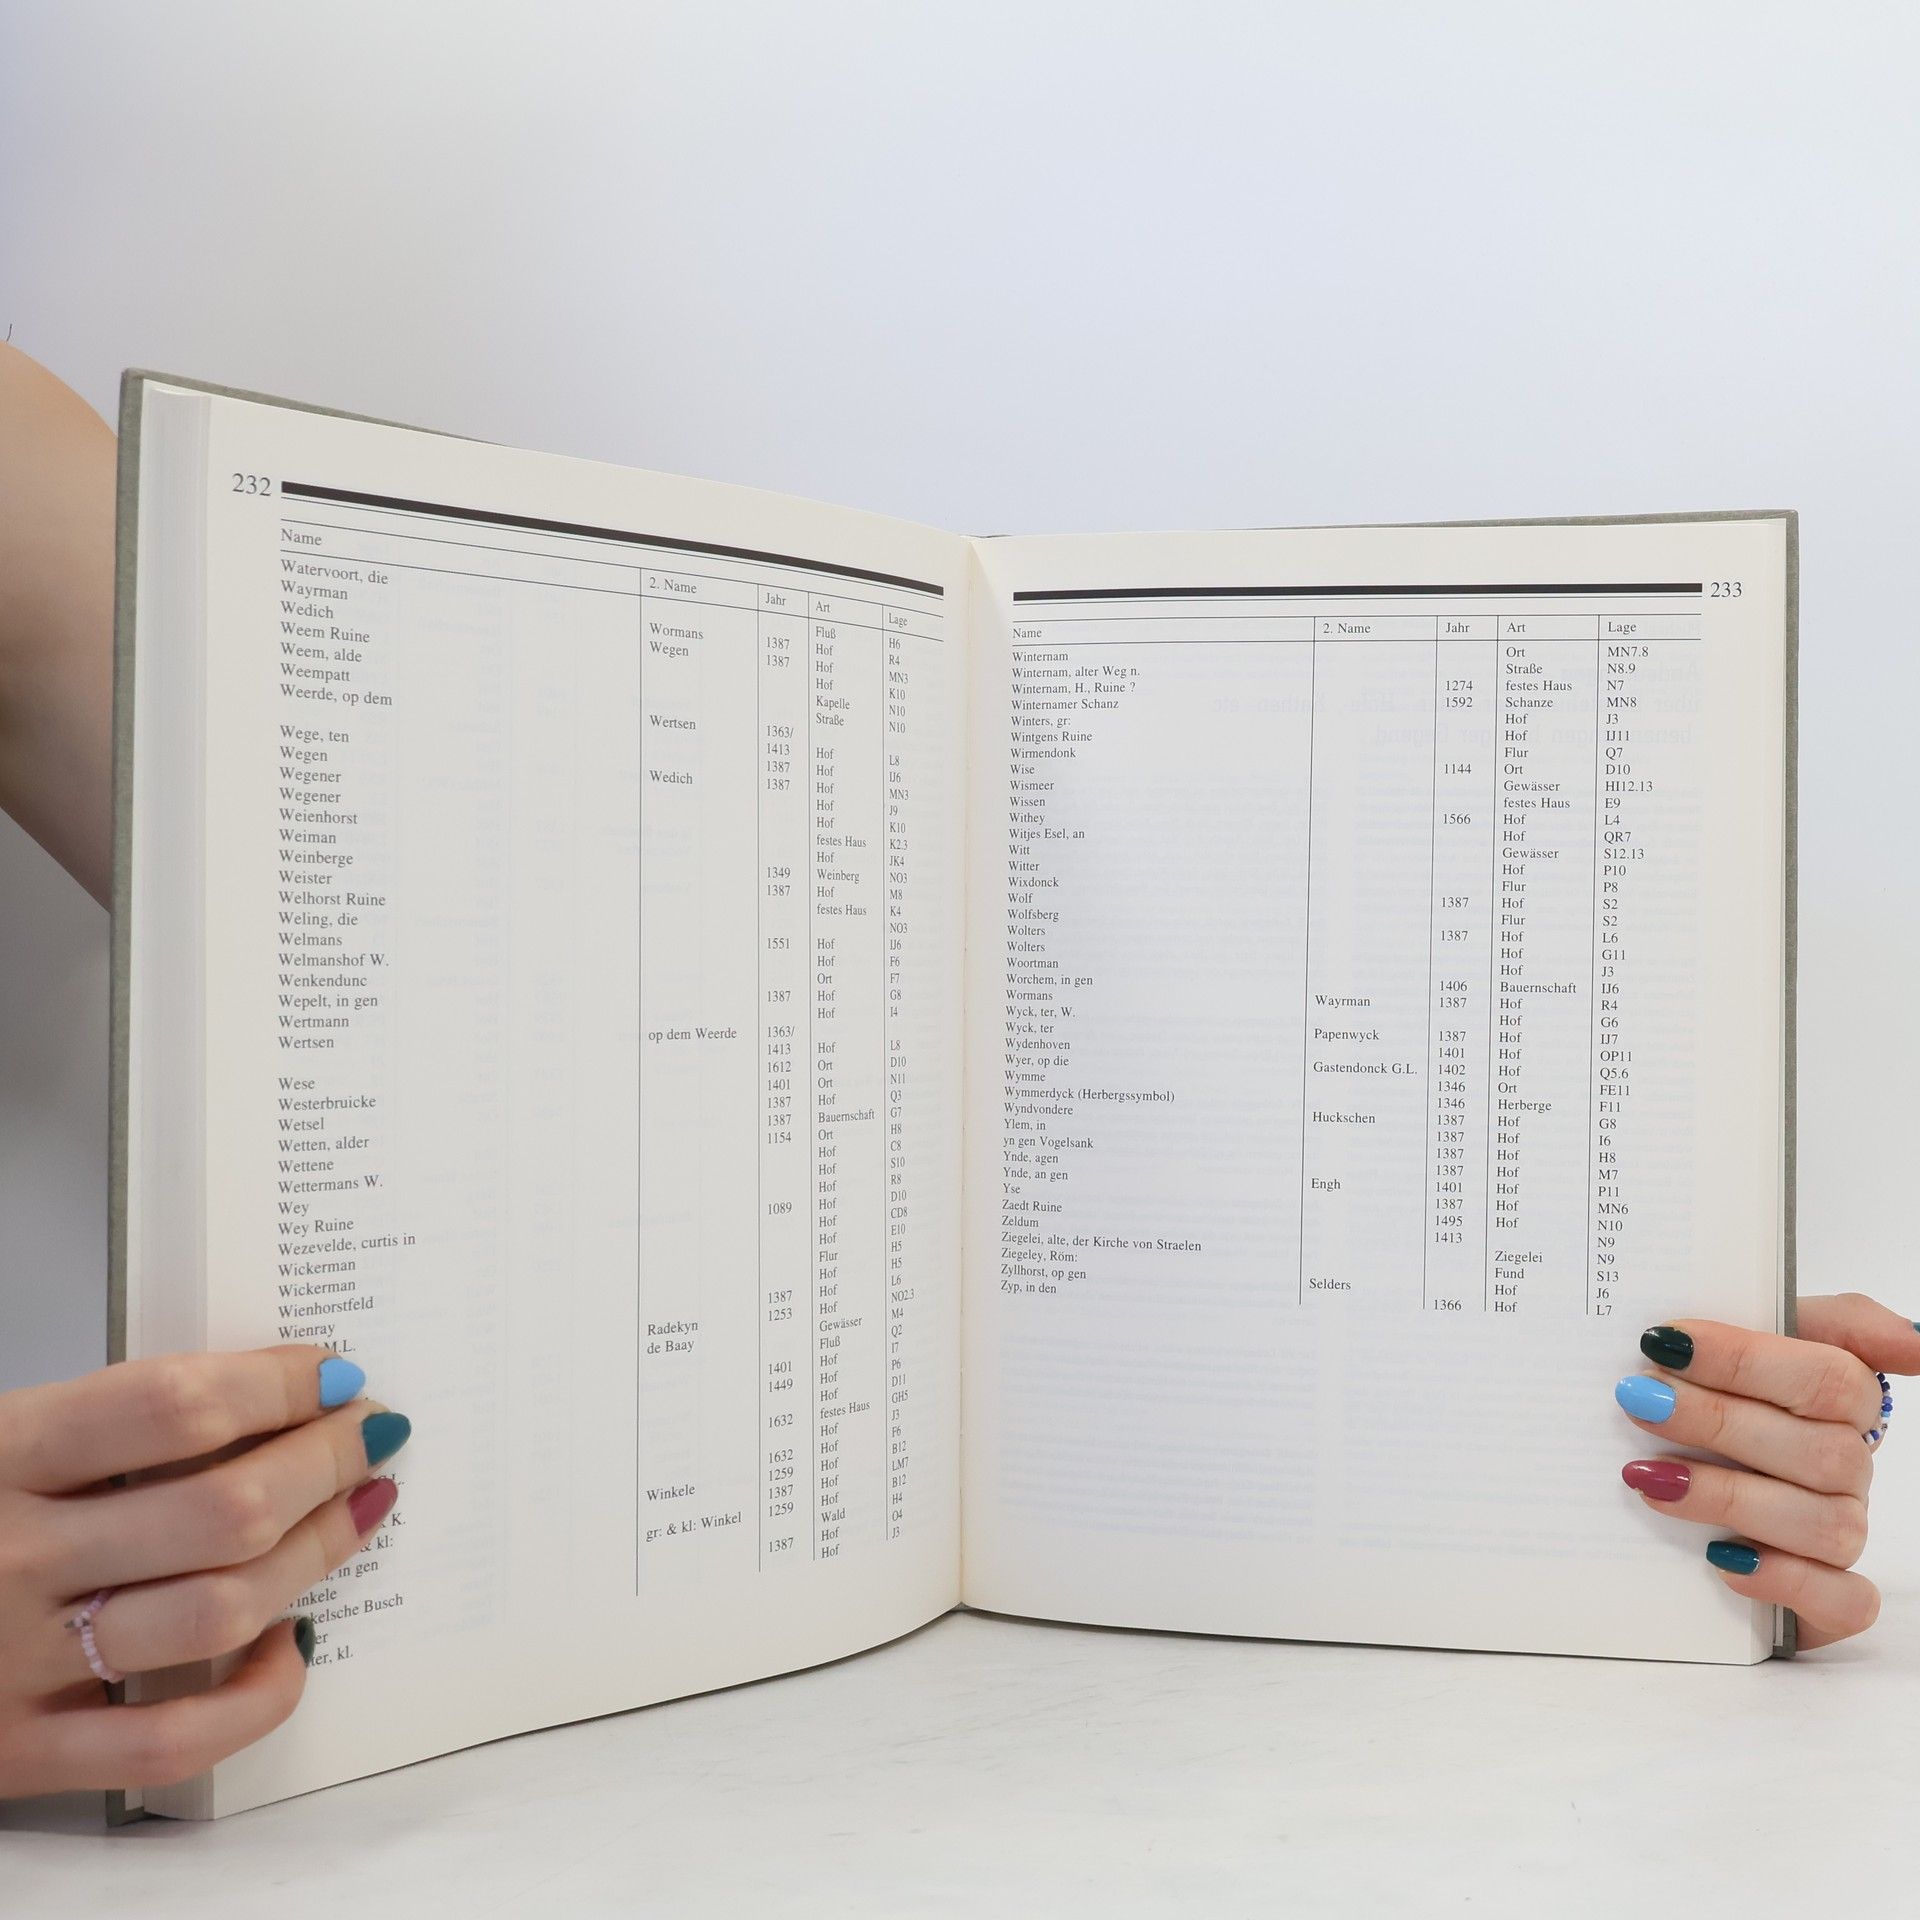 232
Name 2. Name Jahr Art Lage
Watervoort, die Fluß H6
Wayrman Wormans 1387 Hof R4
Wedich Wegen 1387 Hof MN3
Weem Ruine Hof K10
Weem, alde Kapelle N10
Weempatt Straße N10
Weerde, op dem Wertsen 1363/
1413 Hof L8
Wege, ten 1387 Hof IJ6
Wegen Wedich 1387 Hof MN3
Wegener Hof J9
Wegener Hof K10
Weienhorst festes Haus K2.3
Weiman Hof JK4
Weinberge 1349 Weinberg NO3
Weister 1387 Hof M8
Welhorst Ruine festes Haus K4
Weling, die NO3
Welmans 1551 Hof IJ6
Welmanshof W. Hof F6
Wenkendunc Ort F7
Wepelt, in gen 1387 Hof G8
Wertmann Hof I4
Wertsen op dem Weerde 1363/
1413 Hof L8
Wese 1612 Ort D10
Westerbruicke 1401 Ort N11
Wetsel 1387 Hof Q3
Wetten, alder 1387 Bauernschaft G7
Wettene 1154 Ort H8
Wettermans W. Hof C8
Wey Hof S10
Wey Ruine Hof R8
Wezevelde, curtis in 1089 Hof D10
Wickerman Hof CD8
Wickerman Hof E10
Wienhorstfeld Flur H5
Wienray Hof H5
M.L. 1387 Hof L6
1253 Hof NO2.3
Radekyn Gewässer M4
de Baay Fluß Q2
1401 Hof I7
1449 Hof P6
festes Haus D11
1632 Hof GH5
Hof J3
K. 1632 Hof F6
& kl: 1259 Hof B12
in gen Winkele 1387 Hof LM7
Winkele gr: & kl: Winkel 1259 Hof B12
Winkelsche Busch Wald H4
1387 Hof O4
kl. Hof J3
233
Name 2. Name Jahr Art Lage
Winternam Ort MN7.8
Winternam, alter Weg n. Straße N8.9
Winternam, H., Ruine ? 1274 festes Haus N7
Winternamer Schanz 1592 Schanze MN8
Winters, gr: Hof J3
Wintgens Ruine Hof IJ11
Wirmendonk Flur Q7
Wise 1144 Ort D10
Wismeer Gewässer HI12.13
Wissen festes Haus E9
Withey 1566 Hof L4
Witjes Esel, an Hof QR7
Witt Gewässer S12.13
Witter Hof P10
Wixdonck Flur P8
Wolf 1387 Hof S2
Wolfsberg Flur S2
Wolters 1387 Hof L6
Wolters Hof G11
Woortman Hof J3
Worchem, in gen 1406 Bauernschaft IJ6
Wormans Wayrman 1387 Hof R4
Wyck, ter, W. Hof G6
Wyck, ter Papenwyck 1387 Hof IJ7
Wydenhoven 1401 Hof OP11
Wyer, op die Gastendonck G.L. 1402 Hof Q5.6
Wymme 1346 Ort FE11
Wymmerdyck (Herbergssymbol) 1346 Herberge F11
Wyndvondere Huckschen 1387 Hof G8
Ylem, in 1387 Hof I6
yn gen Vogelsank 1387 Hof H8
Ynde, agen 1387 Hof M7
Ynde, an gen Engh 1401 Hof P11
Yse 1387 Hof MN6
Zaedt Ruine 1495 Hof N10
Zeldum 1413 N9
Ziegelei, alte, der Kirche von Straelen Ziegelei N9
Ziegeley, Röm: Fund S13
Zyllhorst, op gen Selders Hof J6
Zyp, in den 1366 Hof L7